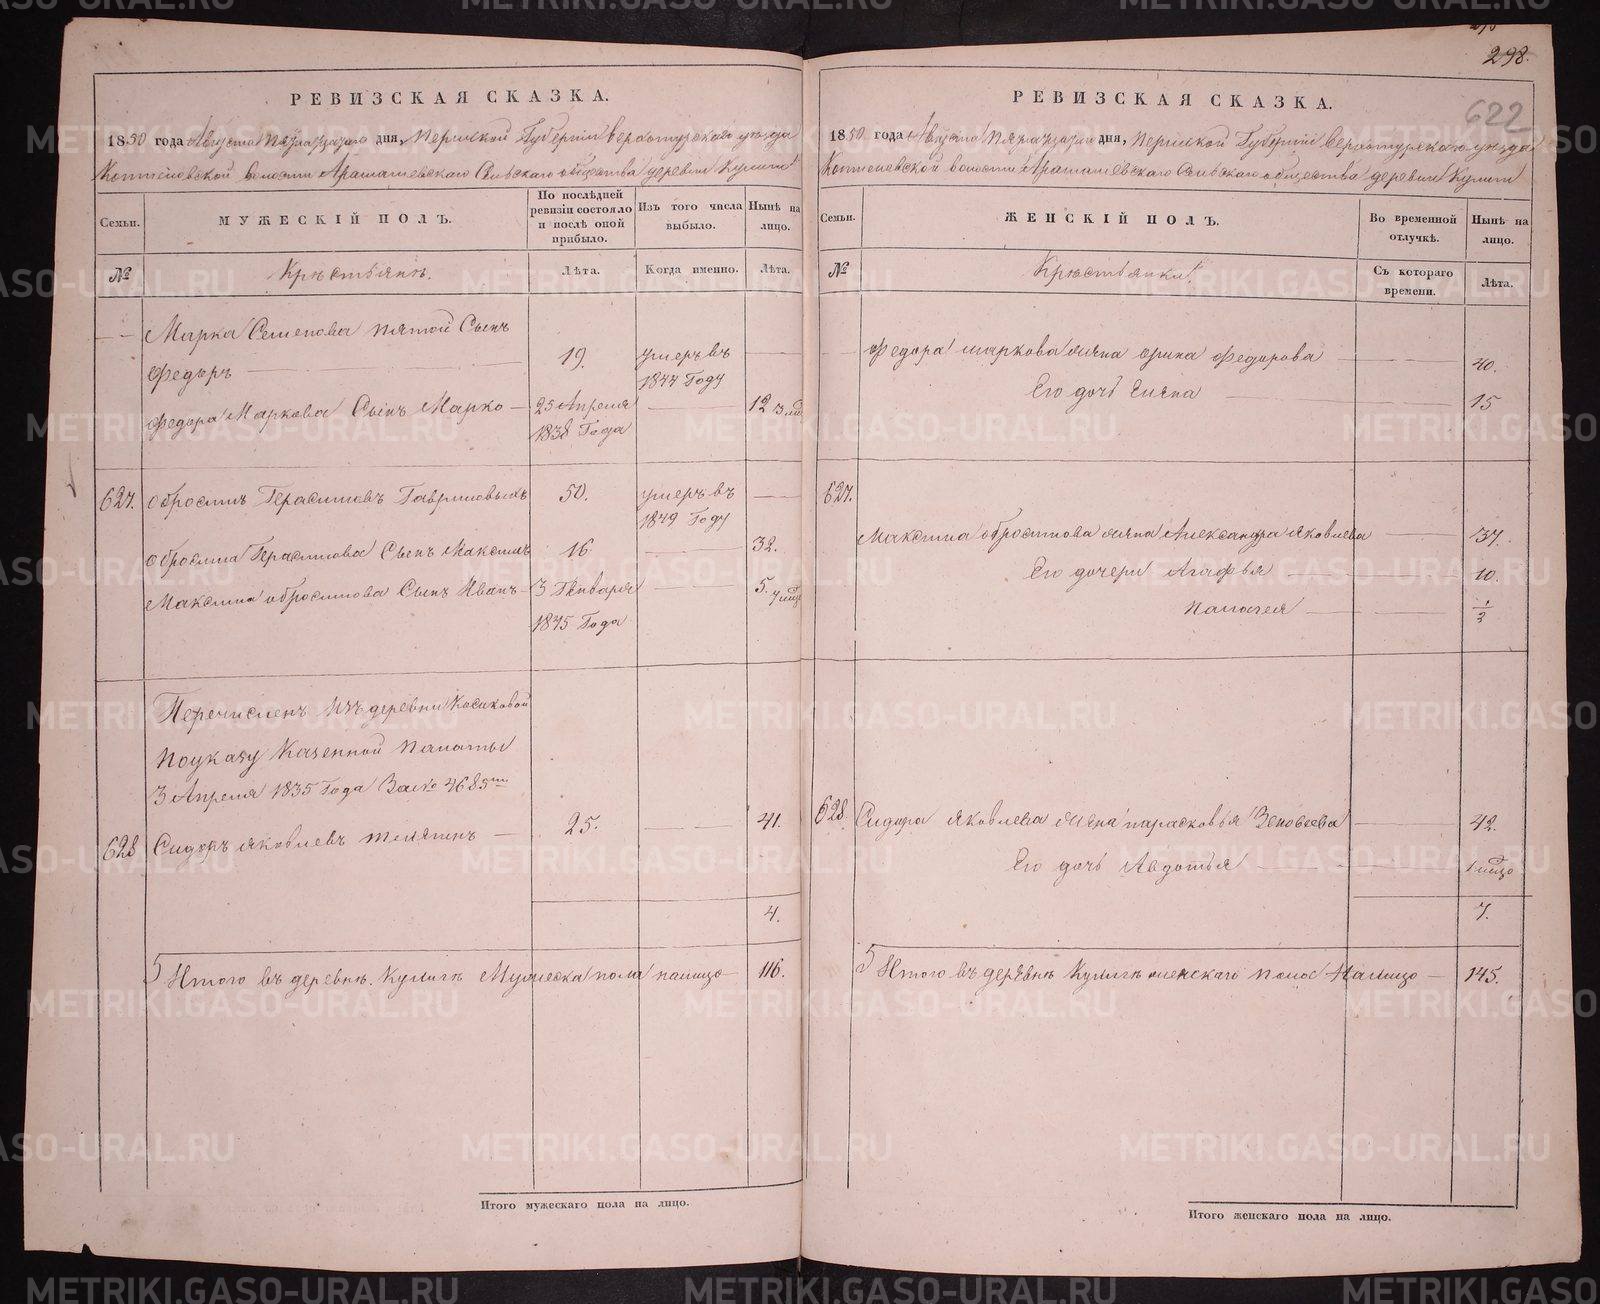 298.
622
РЕВИЗСКАЯ СКАЗКА.
1850 года Августа дня, Пермской Губернии Верхотурскаго уезда
Коптеловской волости Арамашевскаго Сельскаго общества деревни Кулиги
Семьи.
МУЖЕСКІЙ ПОЛЪ.
По послѣдней ревизіи состояло и послѣ оной прибыло.
Изъ того числа выбыло.
Нынѣ на лицо.
№
Крѣстьянѣ.
Лѣта.
Когда именно.
Лѣта.
Марка Семенова пятой Сынъ
Федоръ 19. умеръ въ 1844 Году
Федора Маркова Сынъ Марко 25 Апреля 1838 Года 12
627. Обросимъ Герасимовъ 50. умеръ въ 1849 Году
Обросима Герасимова Сынъ Максимъ 16 32.
Максима обросимова Сынъ Иванъ 3 Генваря 1845 Года 5.
Перечисленъ Изъ деревни Косиковой
По указу Казенной Палаты
3 Апреля 1835 Года За № 4685
628 Сидоръ Яковлевъ 25. 41.
4.
Итого въ деревнѣ Кулигѣ Мужеска пола налицо 116.
Итого мужескаго пола на лицо.
РЕВИЗСКАЯ СКАЗКА.
1850 года Августа дня, Пермской Губерніи Верхотурскаго уезда
Коптеловской волости Арамашевскаго Сельскаго общества деревни Кулиги
Семьи.
ЖЕНСКІЙ ПОЛЪ.
Во временной отлучкѣ.
Нынѣ на лицо.
№
Крѣстьянки
Съ котораго времени.
Лѣта.
Федора маркова жена Орина Федорова 40.
Его дочь Елена 15
627.
Максима обросимова жена Александра Яковлева 37.
Его дочери Агафья 10.
Палагея 1/2
628. Сидора Яковлева жена Парасковья Зеновеева 42.
Его дочь Авдотья
7.
Итого въ деревнѣ Кулигѣ женскаго пола Налицо 145.
Итого женскаго пола на лицо.
METRIKI.GASO-URAL.RU